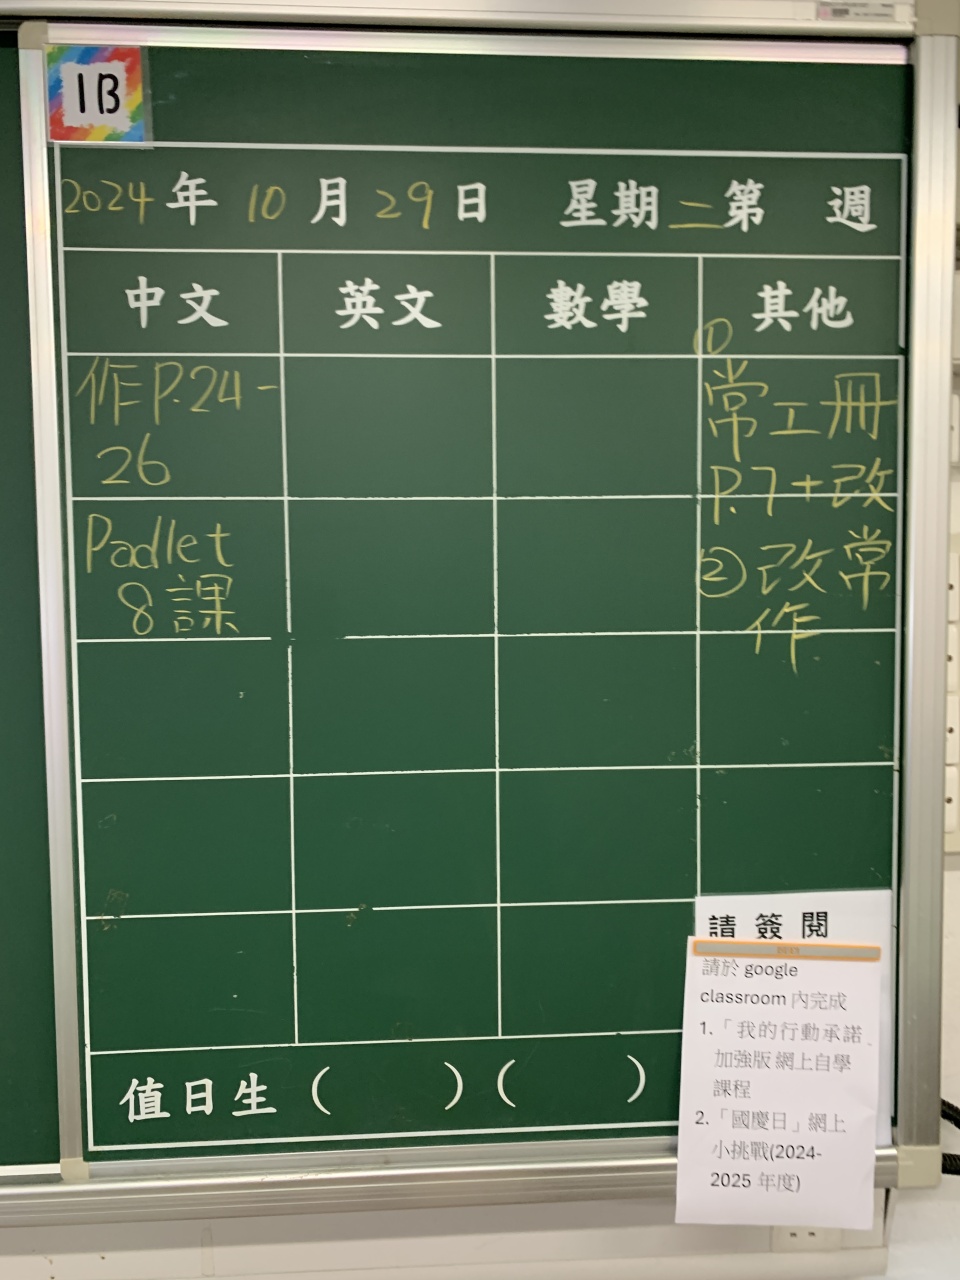 1B
2024年10月29日 星期二第 週
中文 英文 數學 其他
作P.24-
26
Padlet
8課
①
常工冊
P.7+改
②改常
作
請簽閱
請於 google
classroom 內完成
1.「我的行動承諾」
加強版 網上自學
課程
2.「國慶日」網上
小挑戰(2024-
2025 年度)
值日生( )( )